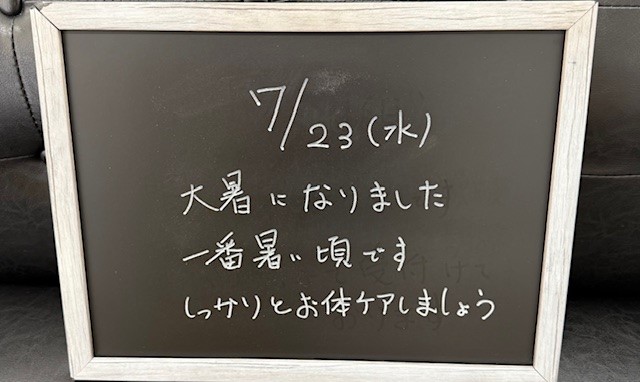 7/23(水)
大暑になりました
一番暑い頃です
しっかりとお体ケアしましょう